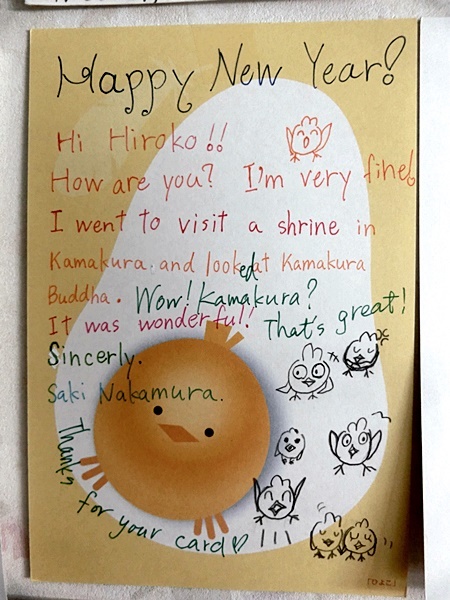 Happy New Year!
Hi Hiroko!!
How are you? I'm very fine!
I went to visit a shrine in
Kamakura. and looked at Kamakura
Buddha. Wow! Kamakura?
It was wonderful! That's great!
Sincerly.
Saki Nakamura.
Thanks for your card♡